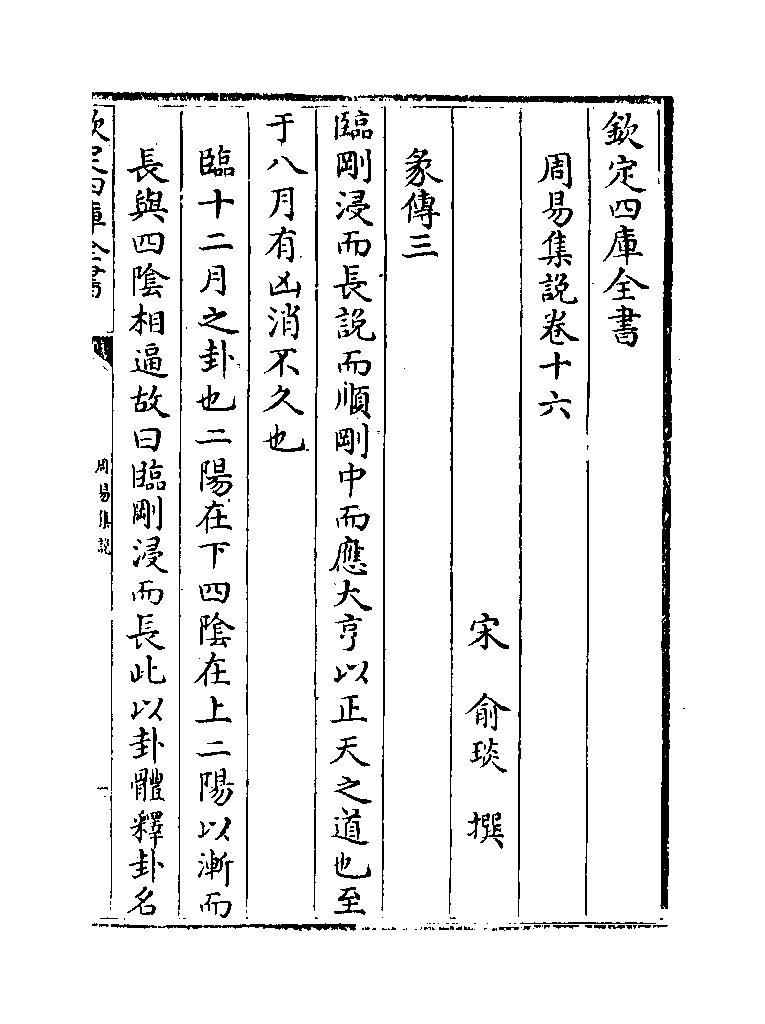 欽定四庫全書
周易集說卷十六
宋 俞琰 撰
彖傳三
臨剛浸而長說而順剛中而應大亨以正天之道也至
于八月有凶消不久也
臨十二月之卦也二陽在下四陰在上二陽以漸而
長與四陰相逼故曰臨剛浸而長此以卦體釋卦名
欽定四庫全書
周易集說
一